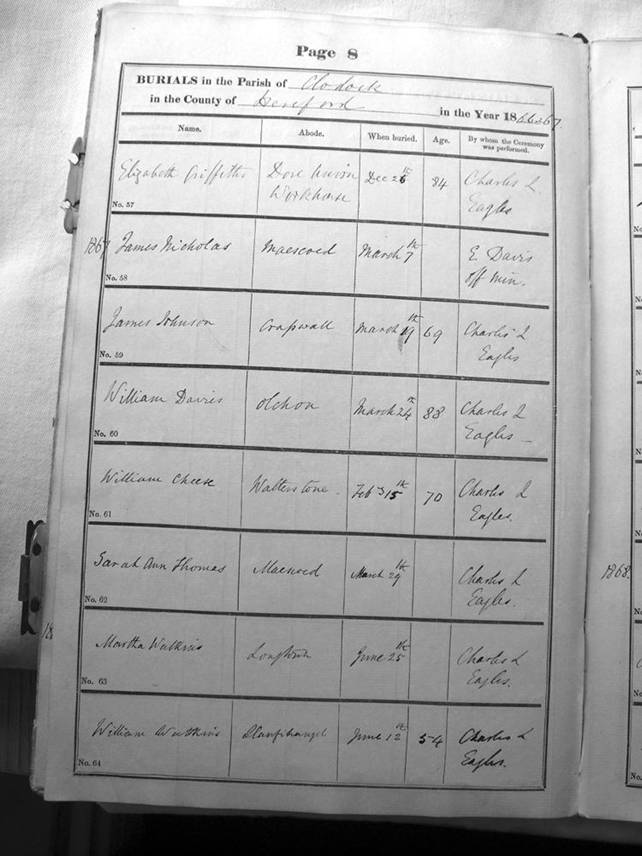 Page 8
BURIALS in the Parish of Clodock
in the County of Hereford in the Year 1866 & 67.
Name. Abode. When buried. Age. By whom the Ceremony was performed.
Elizabeth Griffiths Dore Union Dec 26th 84 Charles L
Workhouse Eagles
No. 57
1867 James Nicholas Maescoed March 7th E Davis
off Min.
No. 58
James Johnson Craswall March 19th 69 Charles L
Eagles
No. 59
William Davies Olchon March 24th 88 Charles L
Eagles
No. 60
William Cheese Walterstone. Feby 15th 70 Charles L
Eagles.
No. 61
Sarah Ann Thomas Maescoed March 29th Charles L
Eagles.
No. 62
Martha Watkins Longtown June 25th Charles L
Eagles.
No. 63
William Watkins June 12th 54 Charles L
Eagles.
No. 64
1868.